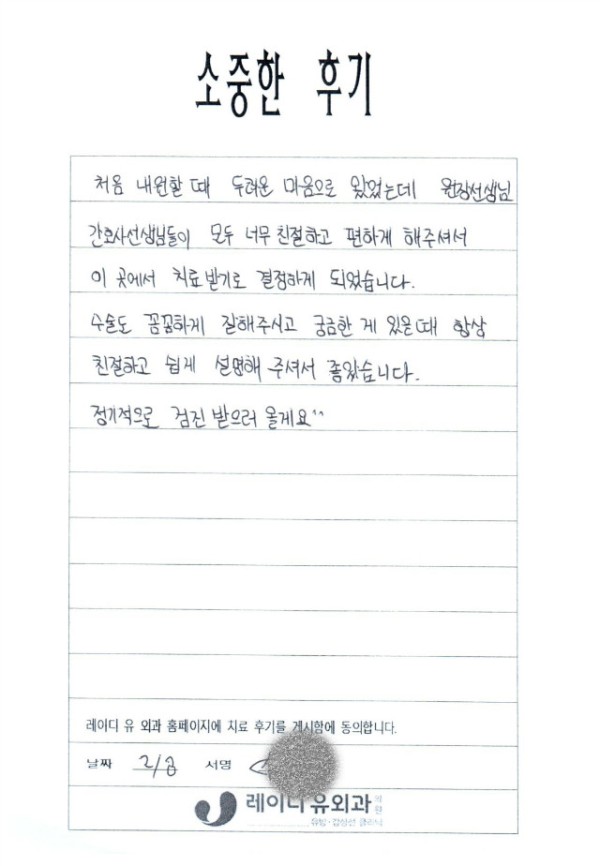 소중한 후기
처음 내원할 때 두려운 마음으로 왔었는데 원장선생님
간호사선생님들이 모두 너무 친절하고 편하게 해주셔서
이 곳에서 치료받기로 결정하게 되었습니다.
수술도 꼼꼼하게 잘해주시고 궁금한 게 있을때 항상
친절하고 쉽게 설명해 주셔서 좋았습니다.
정기적으로 검진 받으러 올게요^^
레이디 유 외과 홈페이지에 치료 후기를 게시함에 동의합니다.
날짜 서명
레이디유외과 의원
유방·갑상선 클리닉